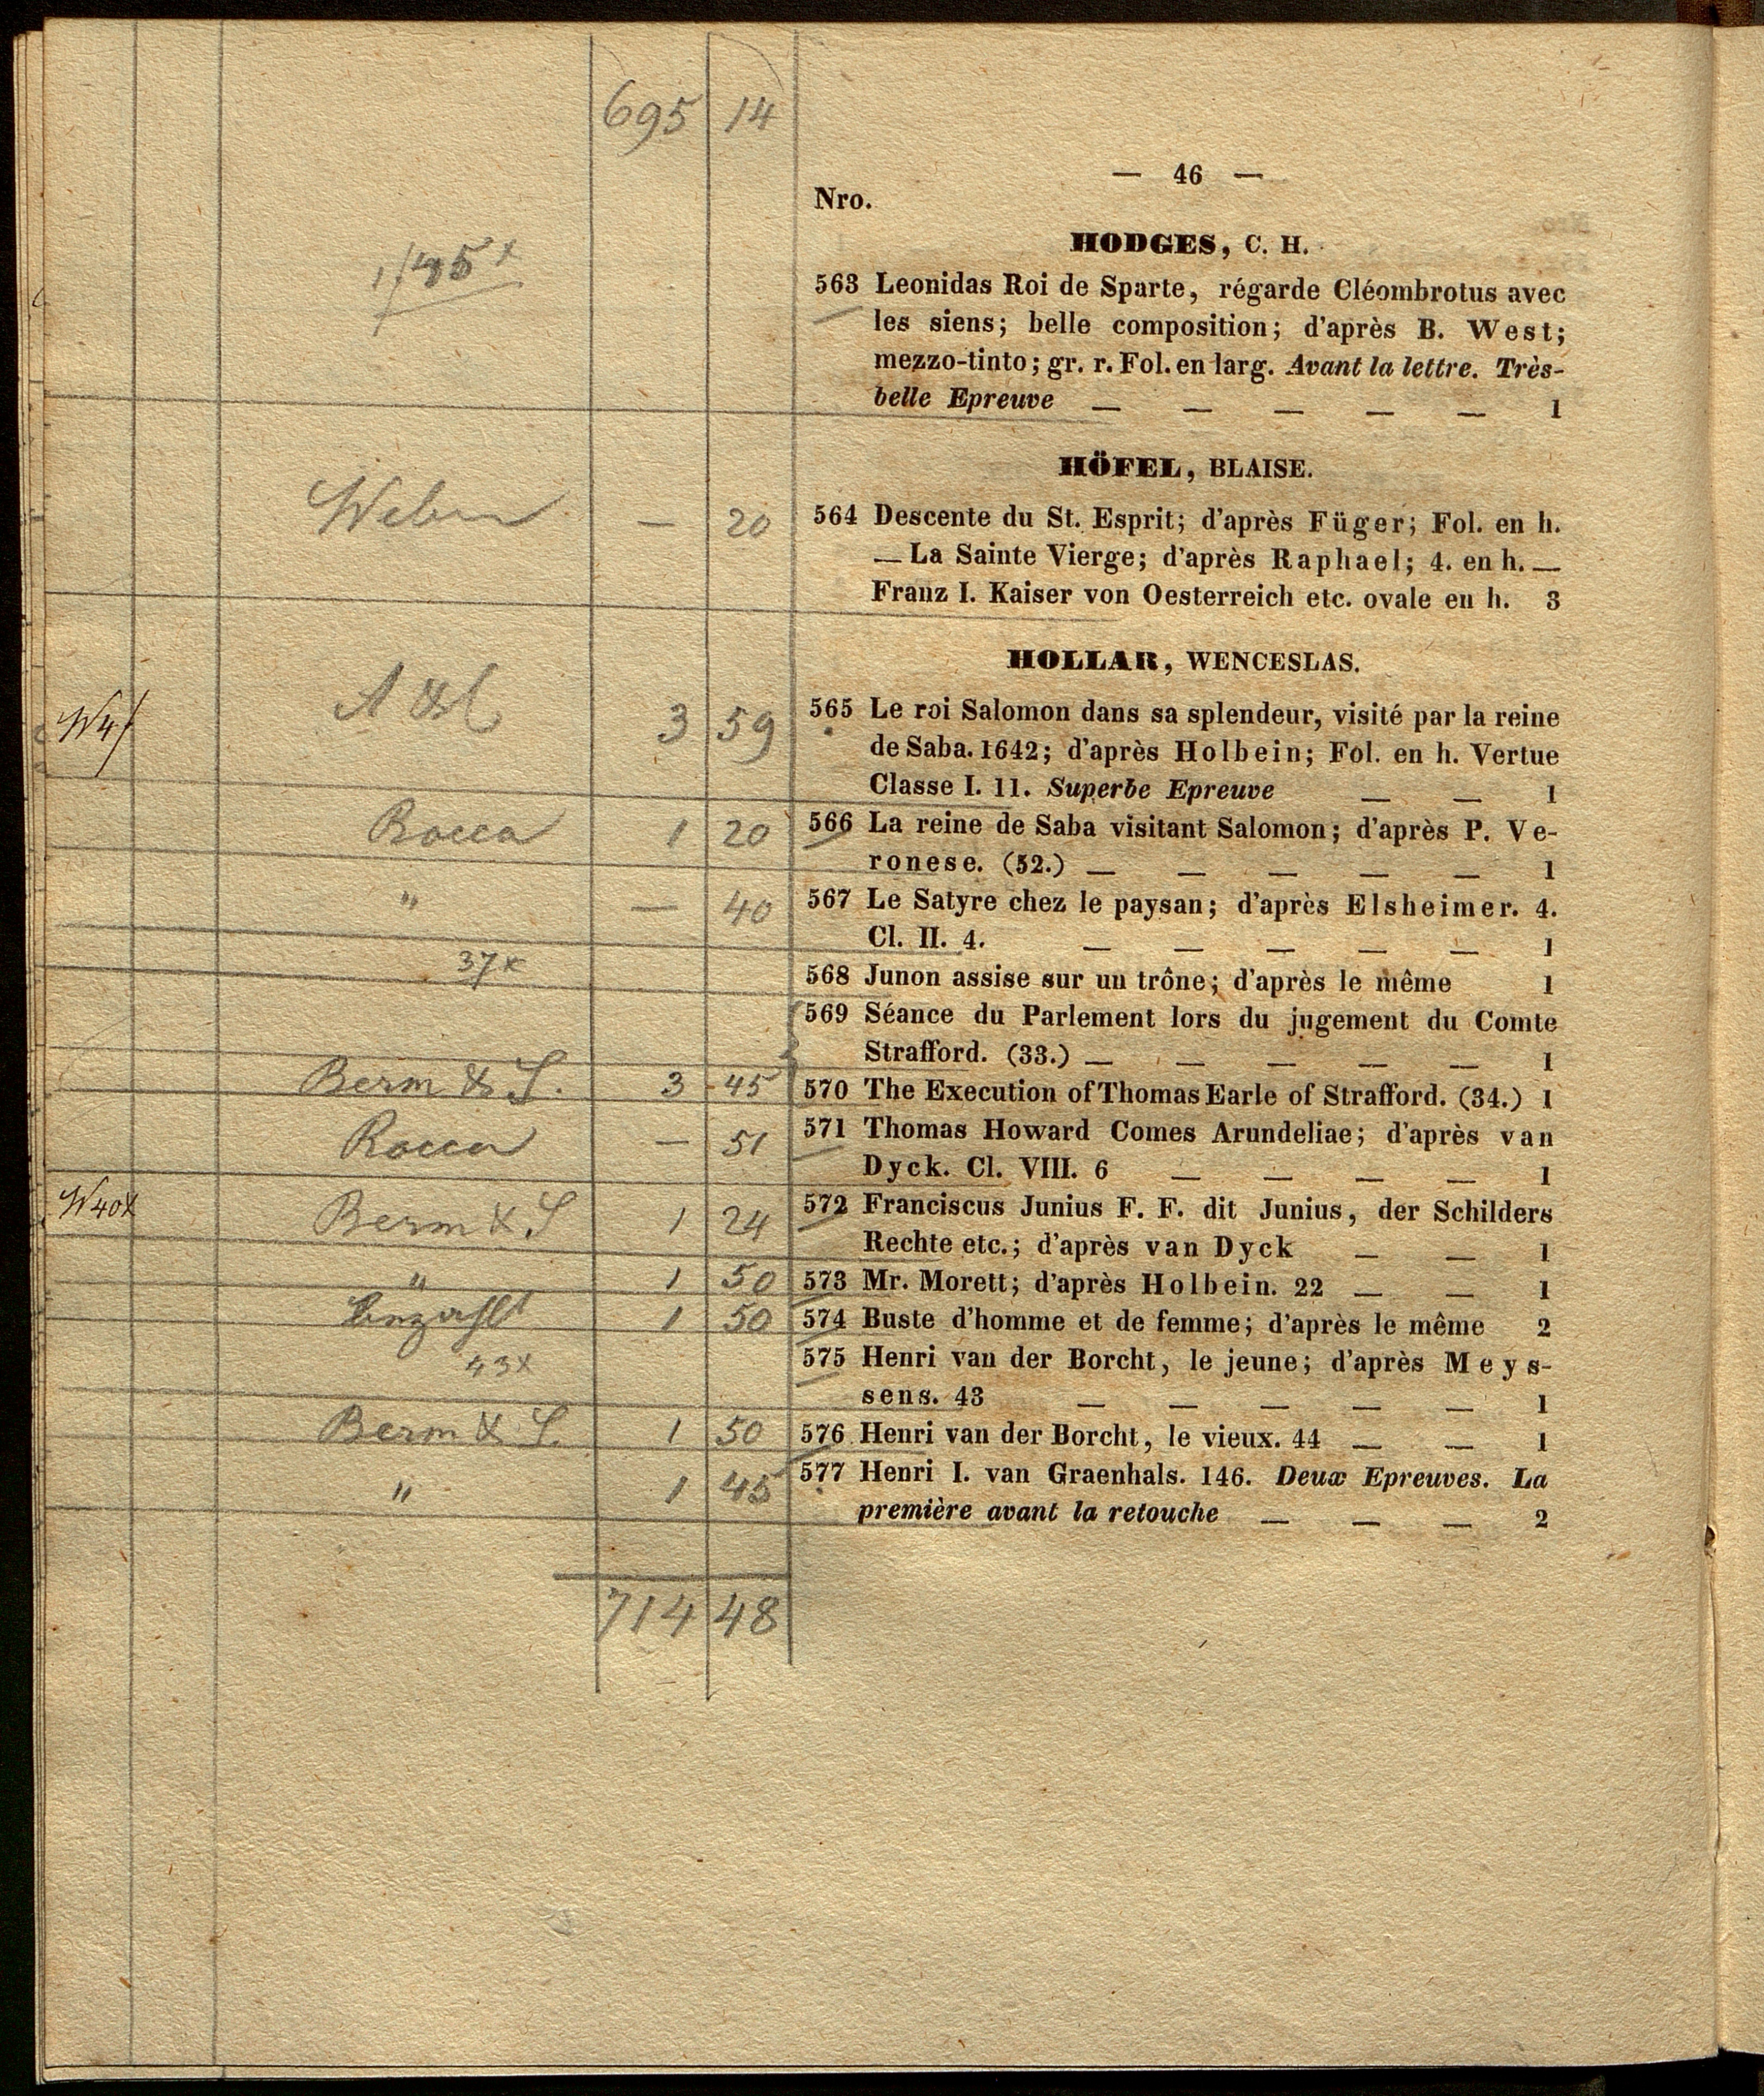 695 14
— 46 —
Nro.
HODGES, C. H.
563 Leonidas Roi de Sparte, régarde Cléombrotus avec
les siens; belle composition; d'après B. West;
mezzo-tinto; gr. r. Fol. en larg. Avant la lettre. Très-
belle Epreuve — — — — — 1
HÖFEL, BLAISE.
— 20 564 Descente du St. Esprit; d'après Füger; Fol. en h.
— La Sainte Vierge; d'après Raphael; 4. en h. —
Franz I. Kaiser von Oesterreich etc. ovale en h. 3
HOLLAR, WENCESLAS.
3 59 565 Le roi Salomon dans sa splendeur, visité par la reine
de Saba. 1642; d'après Holbein; Fol. en h. Vertue
Classe I. 11. Superbe Epreuve — — 1
Rocca 1 20 566 La reine de Saba visitant Salomon; d'après P. Ve-
ronese. (52.) — — — — — 1
" — 40 567 Le Satyre chez le paysan; d'après Elsheimer. 4.
Cl. II. 4. — — — — — 1
37x 568 Junon assise sur un trône; d'après le même 1
569 Séance du Parlement lors du jugement du Comte
Strafford. (33.) — — — — — 1
Berm & S. 3 45 570 The Execution of Thomas Earle of Strafford. (34.) 1
Rocca — 51 571 Thomas Howard Comes Arundeliae; d'après van
Dyck. Cl. VIII. 6 — — — — 1
W40x Berm & S 1 24 572 Franciscus Junius F. F. dit Junius, der Schilders
Rechte etc.; d'après van Dyck — — 1
" 1 50 573 Mr. Morett; d'après Holbein. 22 — — 1
1 50 574 Buste d'homme et de femme; d'après le même 2
43x 575 Henri van der Borcht, le jeune; d'après Meys-
sens. 43 — — — — — 1
Berm & S. 1 50 576 Henri van der Borcht, le vieux. 44 — — 1
" 1 45 577 Henri I. van Graenhals. 146. Deux Epreuves. La
première avant la retouche — — — 2
714 48